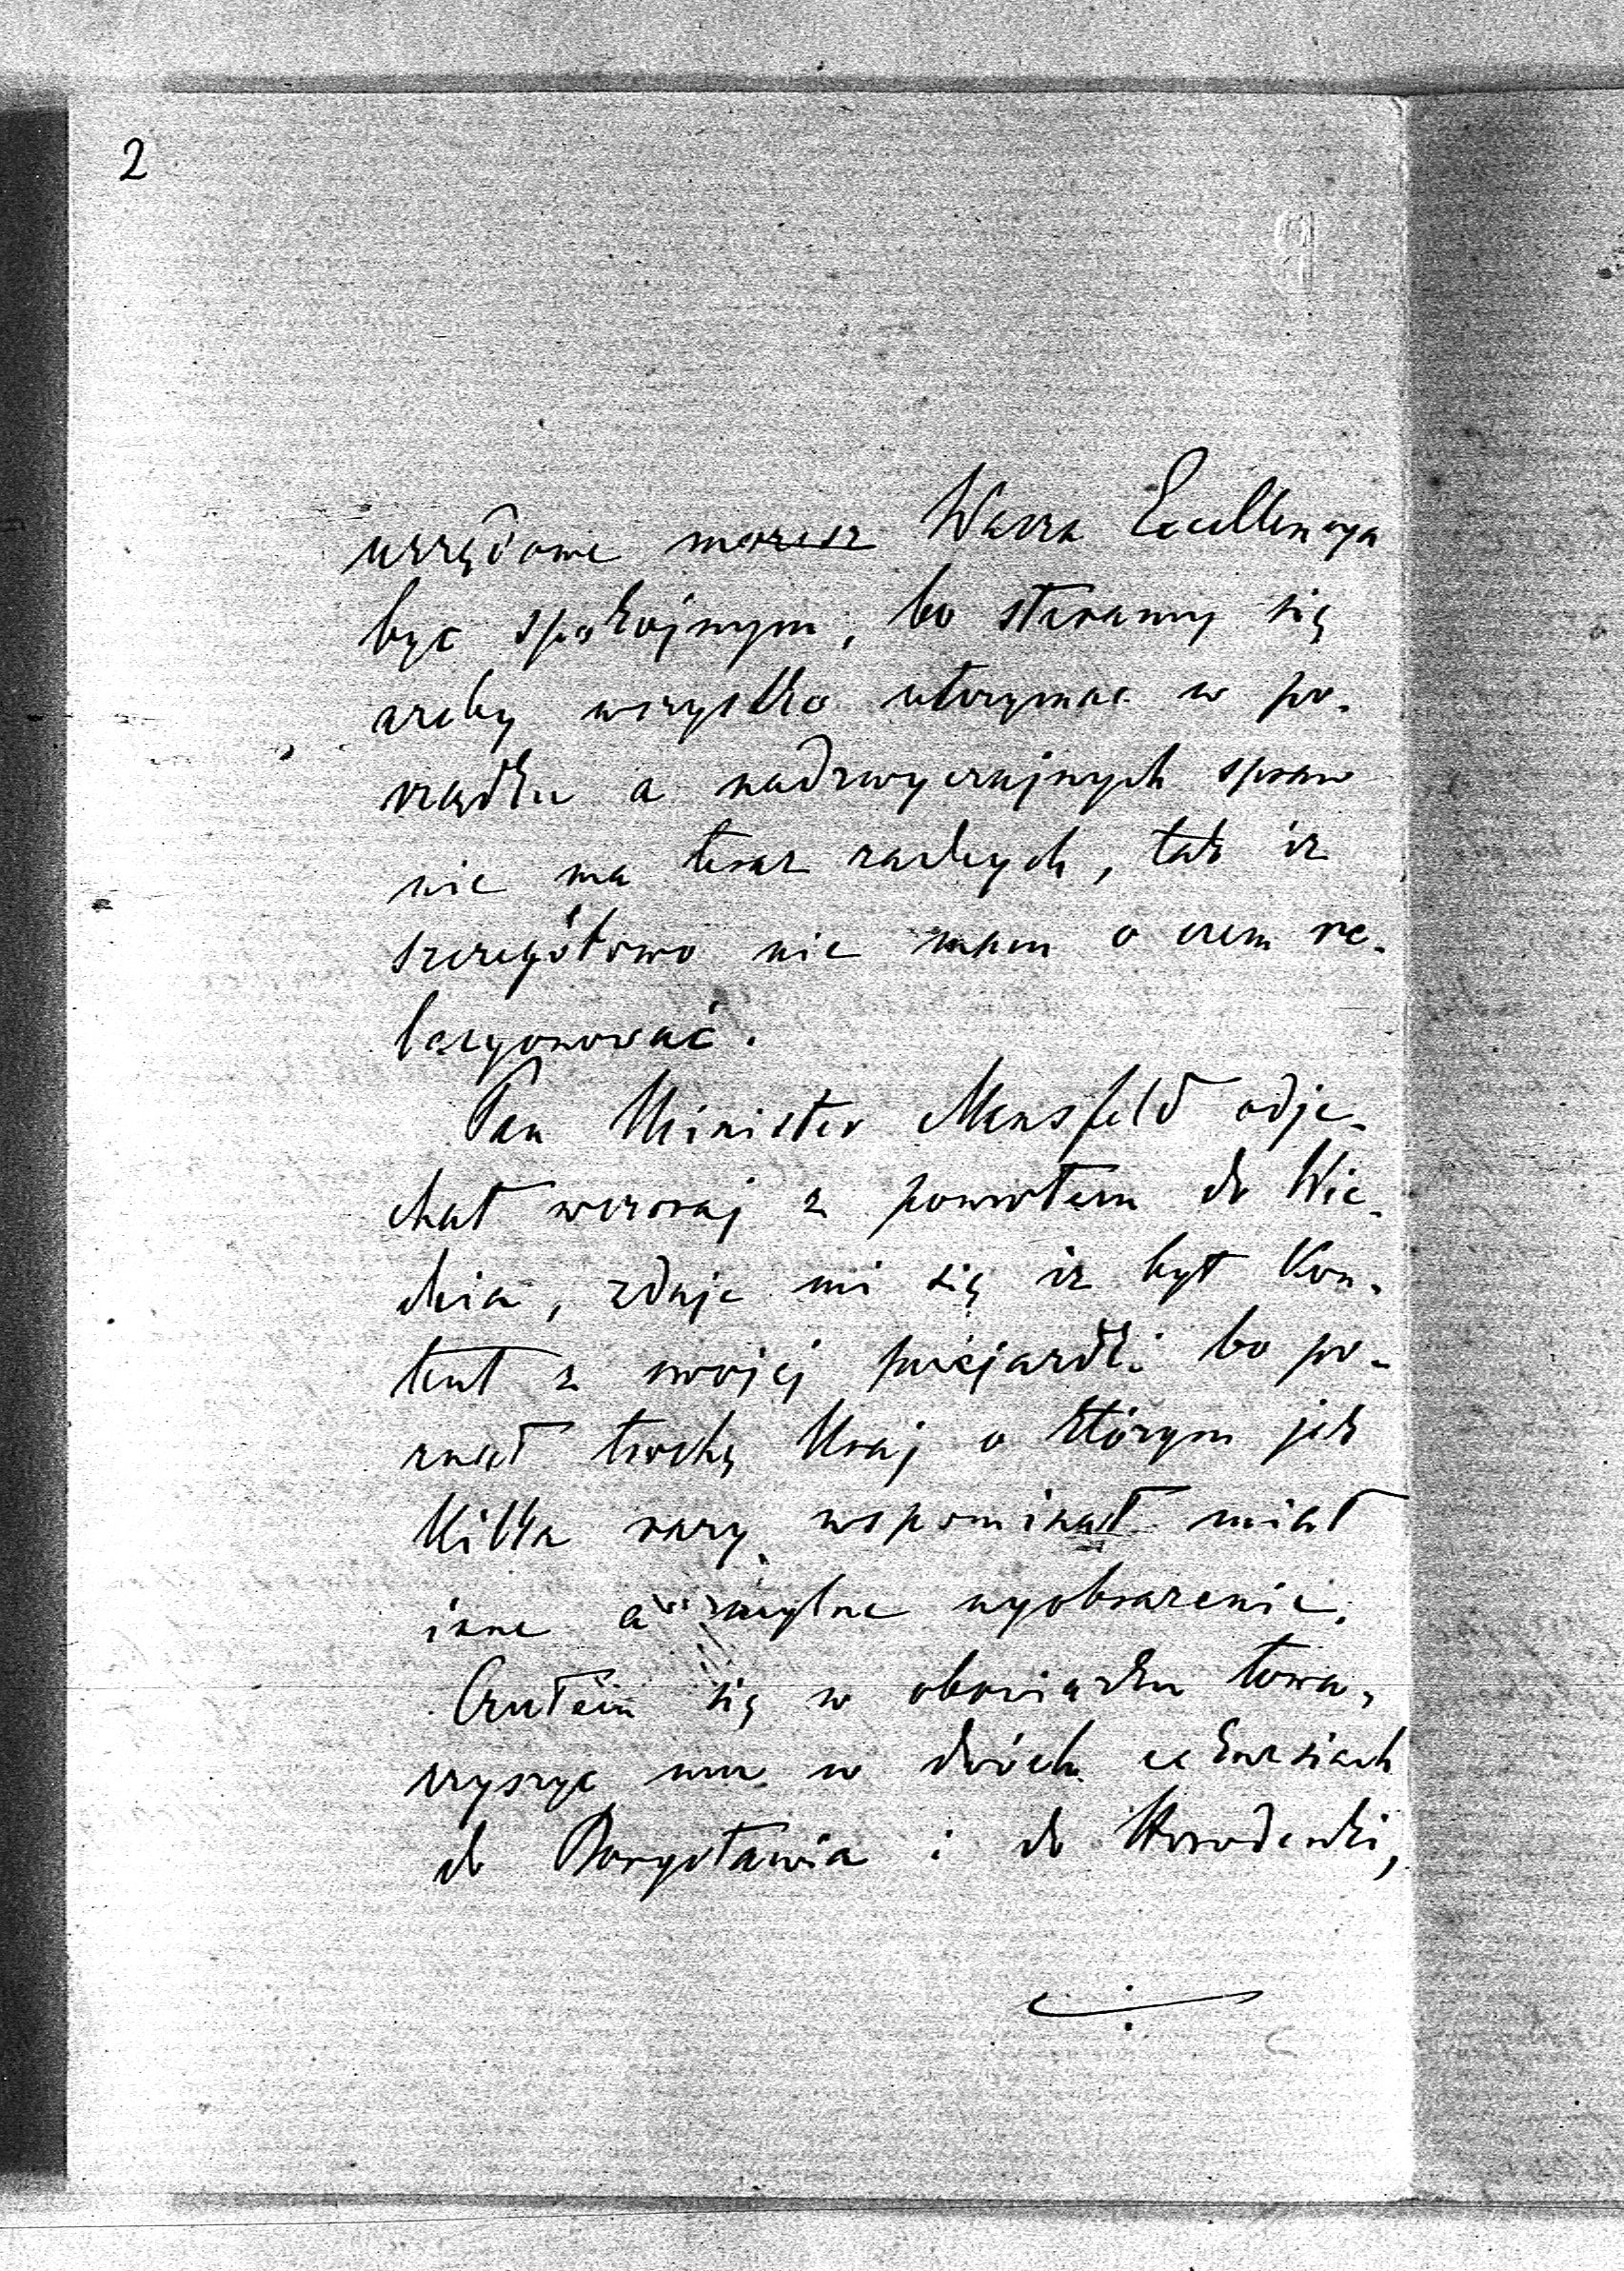 2
urzędowe możesz Wasza Excellencya
być spokojnym, bo staramy się
ażeby wszystko utrzymać w po-
rządku a nadzwyczajnych spraw
nie ma teraz żadnych, tak iż
szczegółowo nie mam o czem re-
lacyonować.
Pan Minister Mansfeld odje-
chał wczoraj z powrotem do Wie-
dnia, zdaje mi się iż był kon-
tent z swojej przejażdki bo po-
znał trochę kraj o którym jak
kilka razy wspominał miał
inne a mylne wyobrażenie.
Czułem się w obowiązku towa-
rzyszyć mu w dwóch exkursiach
do Borysławia i do Horodenki,